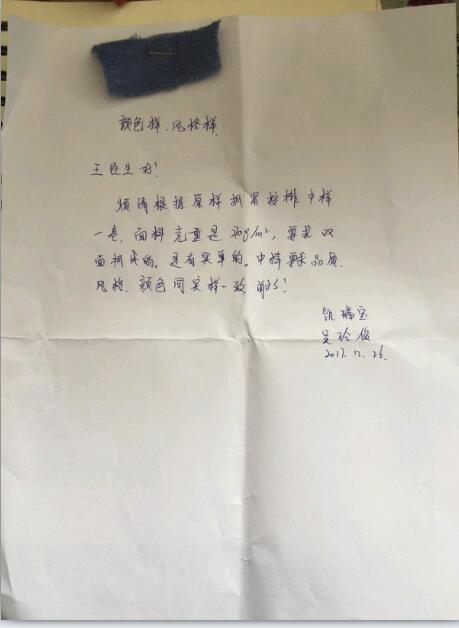 颜色样、风格样
王医生好!
烦请根据原样抓紧安排中样
一卷,面料克重是 g/m²,要求双
面抓毛的。是有买单的。中样要求品质、
风格、颜色同实样一致,谢谢!
凯瑞宝
吴玲俊
2017.12.26.